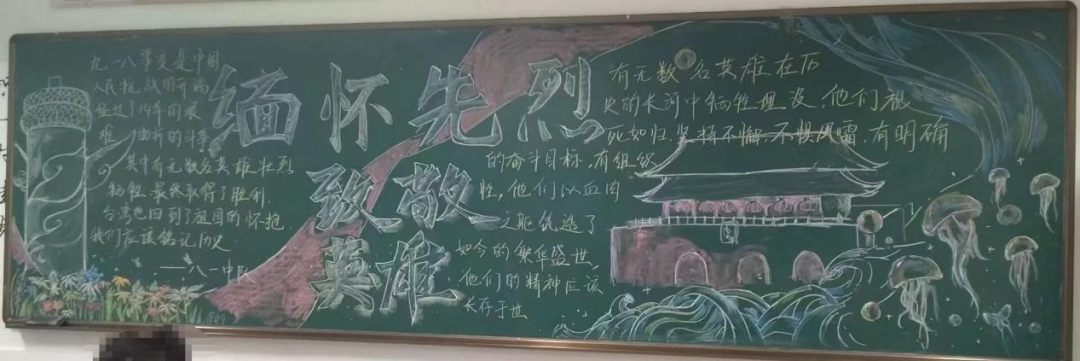 九一八事变是中国
人民抗战的开端
经过了14年的艰
难、曲折的斗争
其中有无数名英雄壮烈
牺牲.最终取得了胜利.
台湾也回到了祖国的怀抱.
我们应该铭记历史
——八一中队
缅怀先烈
致敬
英雄
有无数 名英雄在历
史的长河中牺牲埋没.他们视
死如归.坚持不懈.不惧风雷.有明确
的奋斗目标.有组织
性,他们以血肉
之躯铸造了
如今的繁华盛世,
他们的精神应该
长存于世